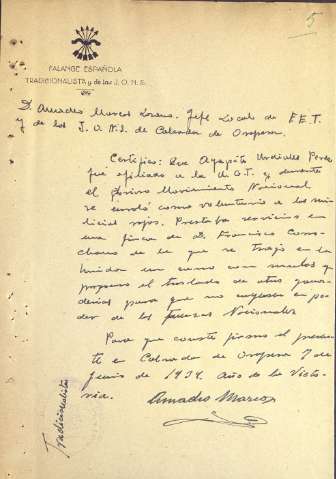 5
FALANGE ESPAÑOLA
TRADICIONALISTA y de las J. O. N. S.
D. Amadeo Marcos Lozano. Jefe Local de F.E.T.
y de las J.O.N.S. de Calera de Oropesa.
Certifico: Que Agapito Urdiales Perez
fue afiliado a la U.G.T. y durante
el Glorioso Movimiento Nacional
se enroló como voluntario a las mi
licias rojas. Prestaba servicios en
una finca de D. Francisco
de la que se trajo en la
huida un carro con mulas y
el traslado de otras gana
derias para que no cayesen en po
der de las fuerzas Nacionales
Para que conste firmo el presen
te en de Oropesa 7 de
Junio de 1939. Año de la Victo
ria.
Amadeo Marcos
Tradicionalista